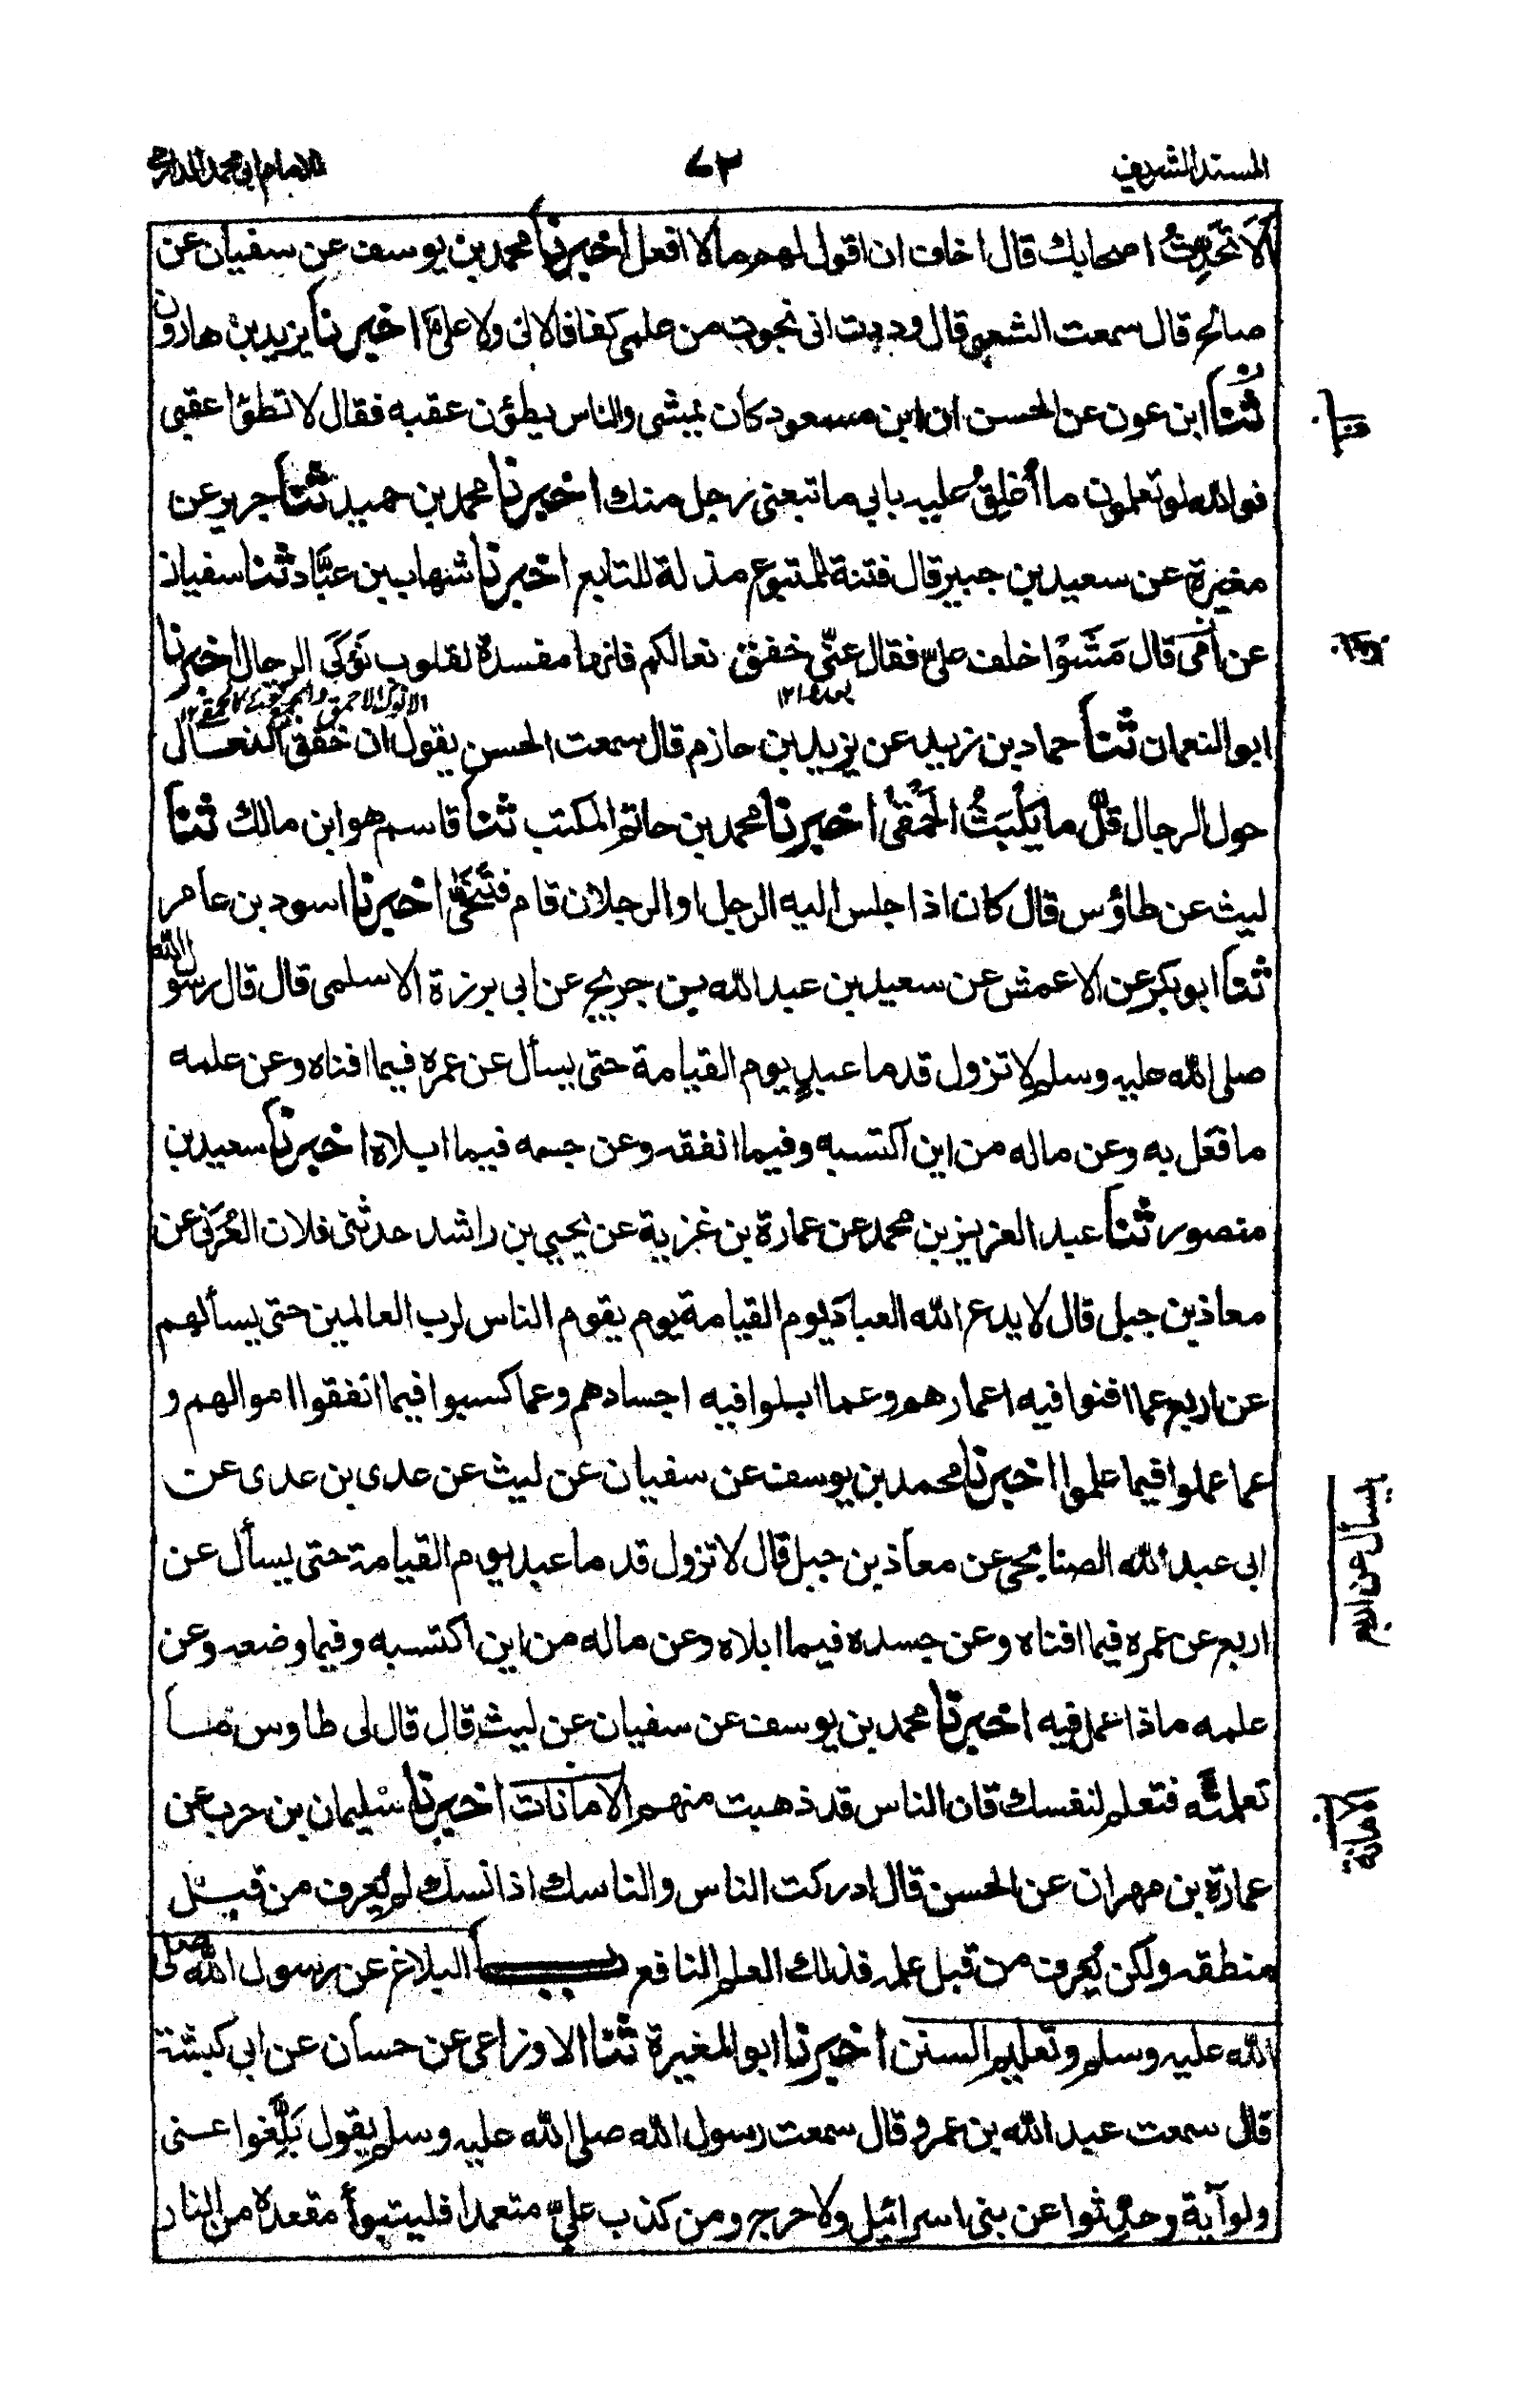 المسند الشريف
٧٣
للامام ابي محمد الدارمي
اَلَا تُحَدِّثُ اصحابك قال اخاف ان اقول لهم ما لا افعل اخبرنا محمد بن يوسف عن سفيان عن
صالح قال سمعت الشعبي قال وددت انى نجوت من علمى كفافا لا لى ولا علىّ اخبرنا يزيد بن هارون
ثنا ابن عون عن الحسن ان ابن مسعود كان يمشى والناس يطؤن عقبه فقال لا تطؤا عقبى
فوالله لو تعلمون ما أُغلِقُ عليه بابي ما تبعنى رجل منك اخبرنا محمد بن حميد ثنا جرير عن
مغيرة عن سعيد بن جبير قال فتنة للمتبوع مذلة للتابع اخبرنا شهاب بن عبّاد ثنا سفيان
عن أُمَيٍّ قال مَشَوْا خلف على فقال عنّى خفق نعالكم فانها مفسدة لقلوب نَوْكَى الرجال اخبرنا
ابو النعمان ثنا حماد بن زيد عن يزيد بن حازم قال سمعت الحسن يقول ان خفق النعال
حول الرجال قلّ ما يَلْبَثُ الحَمْقٰى اخبرنا محمد بن حاتم المكتب ثنا قاسم هو ابن مالك ثنا
ليث عن طاؤس قال كان اذا جلس اليه الرجل او الرجلان قام فتَنَحّٰى اخبرنا اسود بن عامر
ثنا ابو بكر عن الاعمش عن سعيد بن عبد الله بن جريج عن ابى برزة الاسلمى قال قال رسول الله
صلى الله عليه وسلم لا تزول قدما عبدٍ يوم القيامة حتى يسأل عن عمره فيما افناه وعن علمه
ما فعل به وعن ماله من اين اكتسبه وفيما انفقه وعن جسمه فيما ابلاه اخبرنا سعيد بن
منصور ثنا عبد العزيز بن محمد عن عمارة بن غزية عن يحيى بن راشد حدثنى فلان العُرَنى عن
معاذ بن جبل قال لا يدع الله العباد يوم القيامة يوم يقوم الناس لرب العالمين حتى يسألهم
عن اربع عما افنوا فيه اعمارهم وعما ابلوا فيه اجسادهم وعما كسبوا فيما انفقوا اموالهم و
عما عملوا فيما علموا اخبرنا محمد بن يوسف عن سفيان عن ليث عن عدى بن عدى عن
ابى عبد الله الصنابحى عن معاذ بن جبل قال لا تزول قدما عبد يوم القيامة حتى يسأل عن
اربع عن عمره فيما افناه وعن جسده فيما ابلاه وعن ماله من اين اكتسبه وفيما وضعه وعن
علمه ماذا عمل فيه اخبرنا محمد بن يوسف عن سفيان عن ليث قال قال لى طاوس ما
تعلمتَ فتعلم لنفسك فان الناس قد ذهبت منهم الامانات اخبرنا سليمان بن حرب عن
عمارة بن مهران عن الحسن قال ادركت الناس والناسك اذا نسك لم يُعرف من قبل
منطقه ولكن يُعرف من قبل عمله فذلك العلم النافع باب البلاغ عن رسول الله صلى
الله عليه وسلم وتعليم السنن اخبرنا ابو المغيرة ثنا الاوزاعى عن حسان عن ابى كبشة
قال سمعت عبد الله بن عمرو قال سمعت رسول الله صلى الله عليه وسلم يقول بَلِّغوا عنى
ولو آية وحدّثوا عن بنى اسرائيل ولا حرج ومن كذب علىّ متعمدا فليتبوأ مقعده من النار
يسأل عن اربع
الامانة